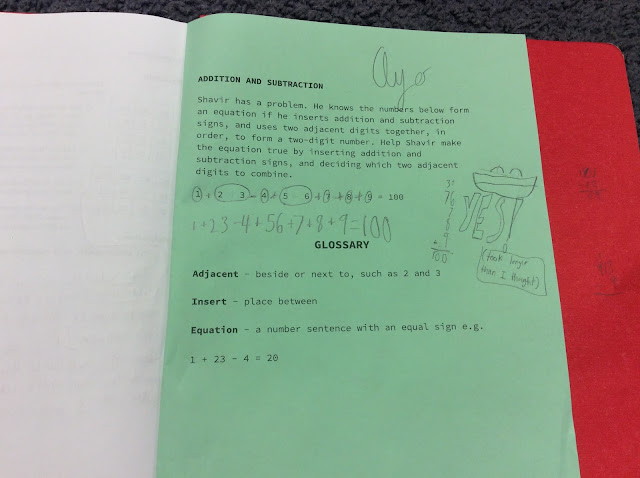 Ayo
ADDITION AND SUBTRACTION
Shavir has a problem. He knows the numbers below form
an equation if he inserts addition and subtraction
signs, and uses two adjacent digits together, in
order, to form a two-digit number. Help Shavir make
the equation true by inserting addition and
subtraction signs, and deciding which two adjacent
digits to combine.
1 + 2 3 - 4 + 5 6 + 7 + 8 + 9 = 100
1+23-4+56+7+8+9=100
76
7
8
+ 9
100
YES!
(took longer
than I thought)
GLOSSARY
Adjacent - beside or next to, such as 2 and 3
Insert - place between
Equation - a number sentence with an equal sign e.g.
1 + 23 - 4 = 20